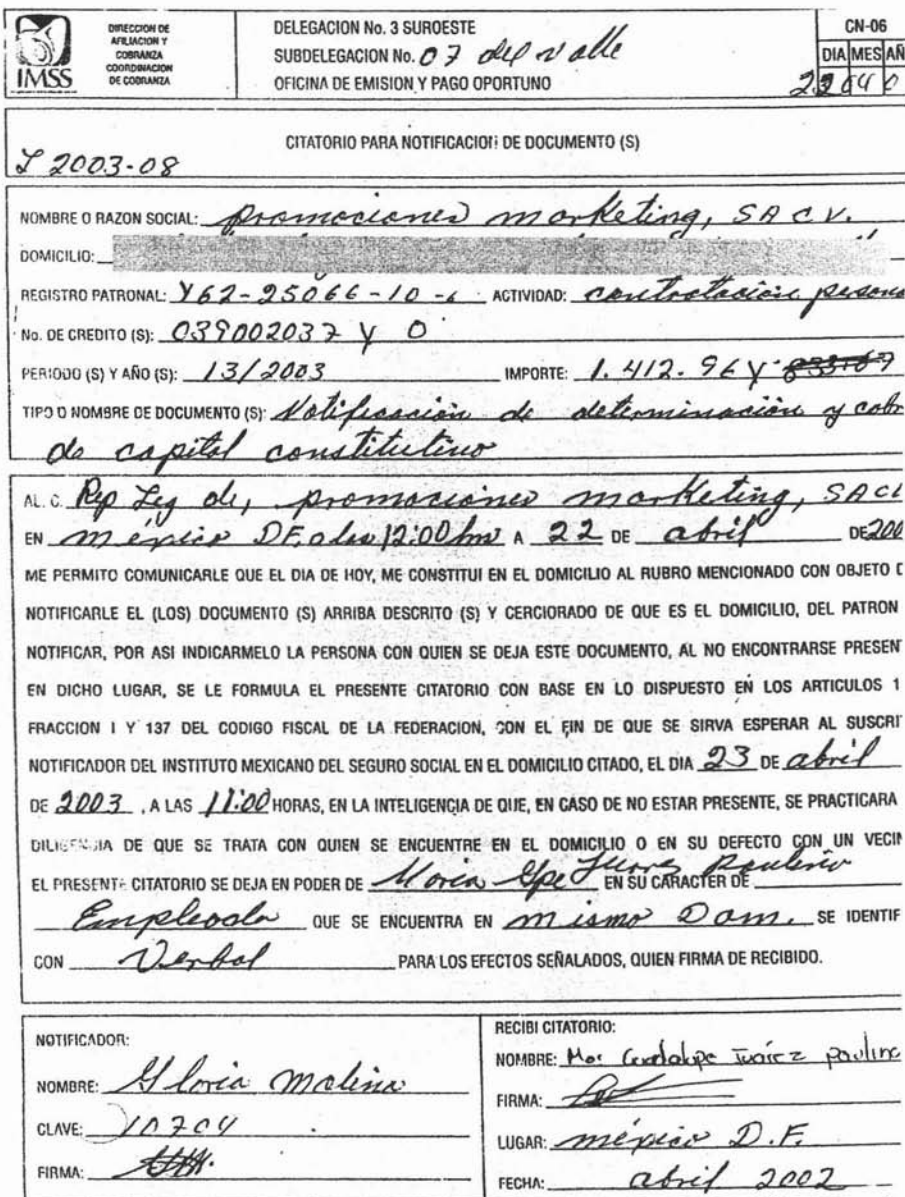 IMSS
DIRECCION DE
AFILIACION Y
COBRANZA
COORDINACION
DE COBRANZA
DELEGACION No. 3 SUROESTE
SUBDELEGACION No. 07 del valle
OFICINA DE EMISION Y PAGO OPORTUNO
CN-06
DIA MES AÑ
22 04 0
CITATORIO PARA NOTIFICACION DE DOCUMENTO (S)
2003-08
NOMBRE O RAZON SOCIAL: promociones marketing, SA C V.
DOMICILIO:
REGISTRO PATRONAL: Y62-25066-10-6 ACTIVIDAD: contratación persona
No. DE CREDITO (S): 039002037 y 0
PERIODO (S) Y AÑO (S): 13/2003 IMPORTE: 1.412.96 y
TIPO O NOMBRE DE DOCUMENTO (S): Notificación de determinación y cobr
de capital constitutivo
AL C. Rep Leg de, promociones marketing, SACV
EN méxico DF, a las 12:00 hrs A 22 DE abril DE 200
ME PERMITO COMUNICARLE QUE EL DIA DE HOY, ME CONSTITUI EN EL DOMICILIO AL RUBRO MENCIONADO CON OBJETO D
NOTIFICARLE EL (LOS) DOCUMENTO (S) ARRIBA DESCRITO (S) Y CERCIORADO DE QUE ES EL DOMICILIO, DEL PATRON
NOTIFICAR, POR ASI INDICARMELO LA PERSONA CON QUIEN SE DEJA ESTE DOCUMENTO, AL NO ENCONTRARSE PRESENT
EN DICHO LUGAR, SE LE FORMULA EL PRESENTE CITATORIO CON BASE EN LO DISPUESTO EN LOS ARTICULOS 1
FRACCION I Y 137 DEL CODIGO FISCAL DE LA FEDERACION, CON EL FIN DE QUE SE SIRVA ESPERAR AL SUSCRIT
NOTIFICADOR DEL INSTITUTO MEXICANO DEL SEGURO SOCIAL EN EL DOMICILIO CITADO, EL DIA 23 DE abril
DE 2003, A LAS 11:00 HORAS, EN LA INTELIGENCIA DE QUE, EN CASO DE NO ESTAR PRESENTE, SE PRACTICARA
DILIGENCIA DE QUE SE TRATA CON QUIEN SE ENCUENTRE EN EL DOMICILIO O EN SU DEFECTO CON UN VECIN
EL PRESENTE CITATORIO SE DEJA EN PODER DE Maria Gpe Juarez Paulino EN SU CARACTER DE
Empleada QUE SE ENCUENTRA EN mismo Dom. SE IDENTIF
CON Verbal PARA LOS EFECTOS SEÑALADOS, QUIEN FIRMA DE RECIBIDO.
NOTIFICADOR:
NOMBRE: Gloria Molina
CLAVE: 10704
FIRMA:
RECIBI CITATORIO:
NOMBRE: Ma. Guadalupe Juárez Paulino
FIRMA:
LUGAR: méxico D.F.
FECHA: abril 2002